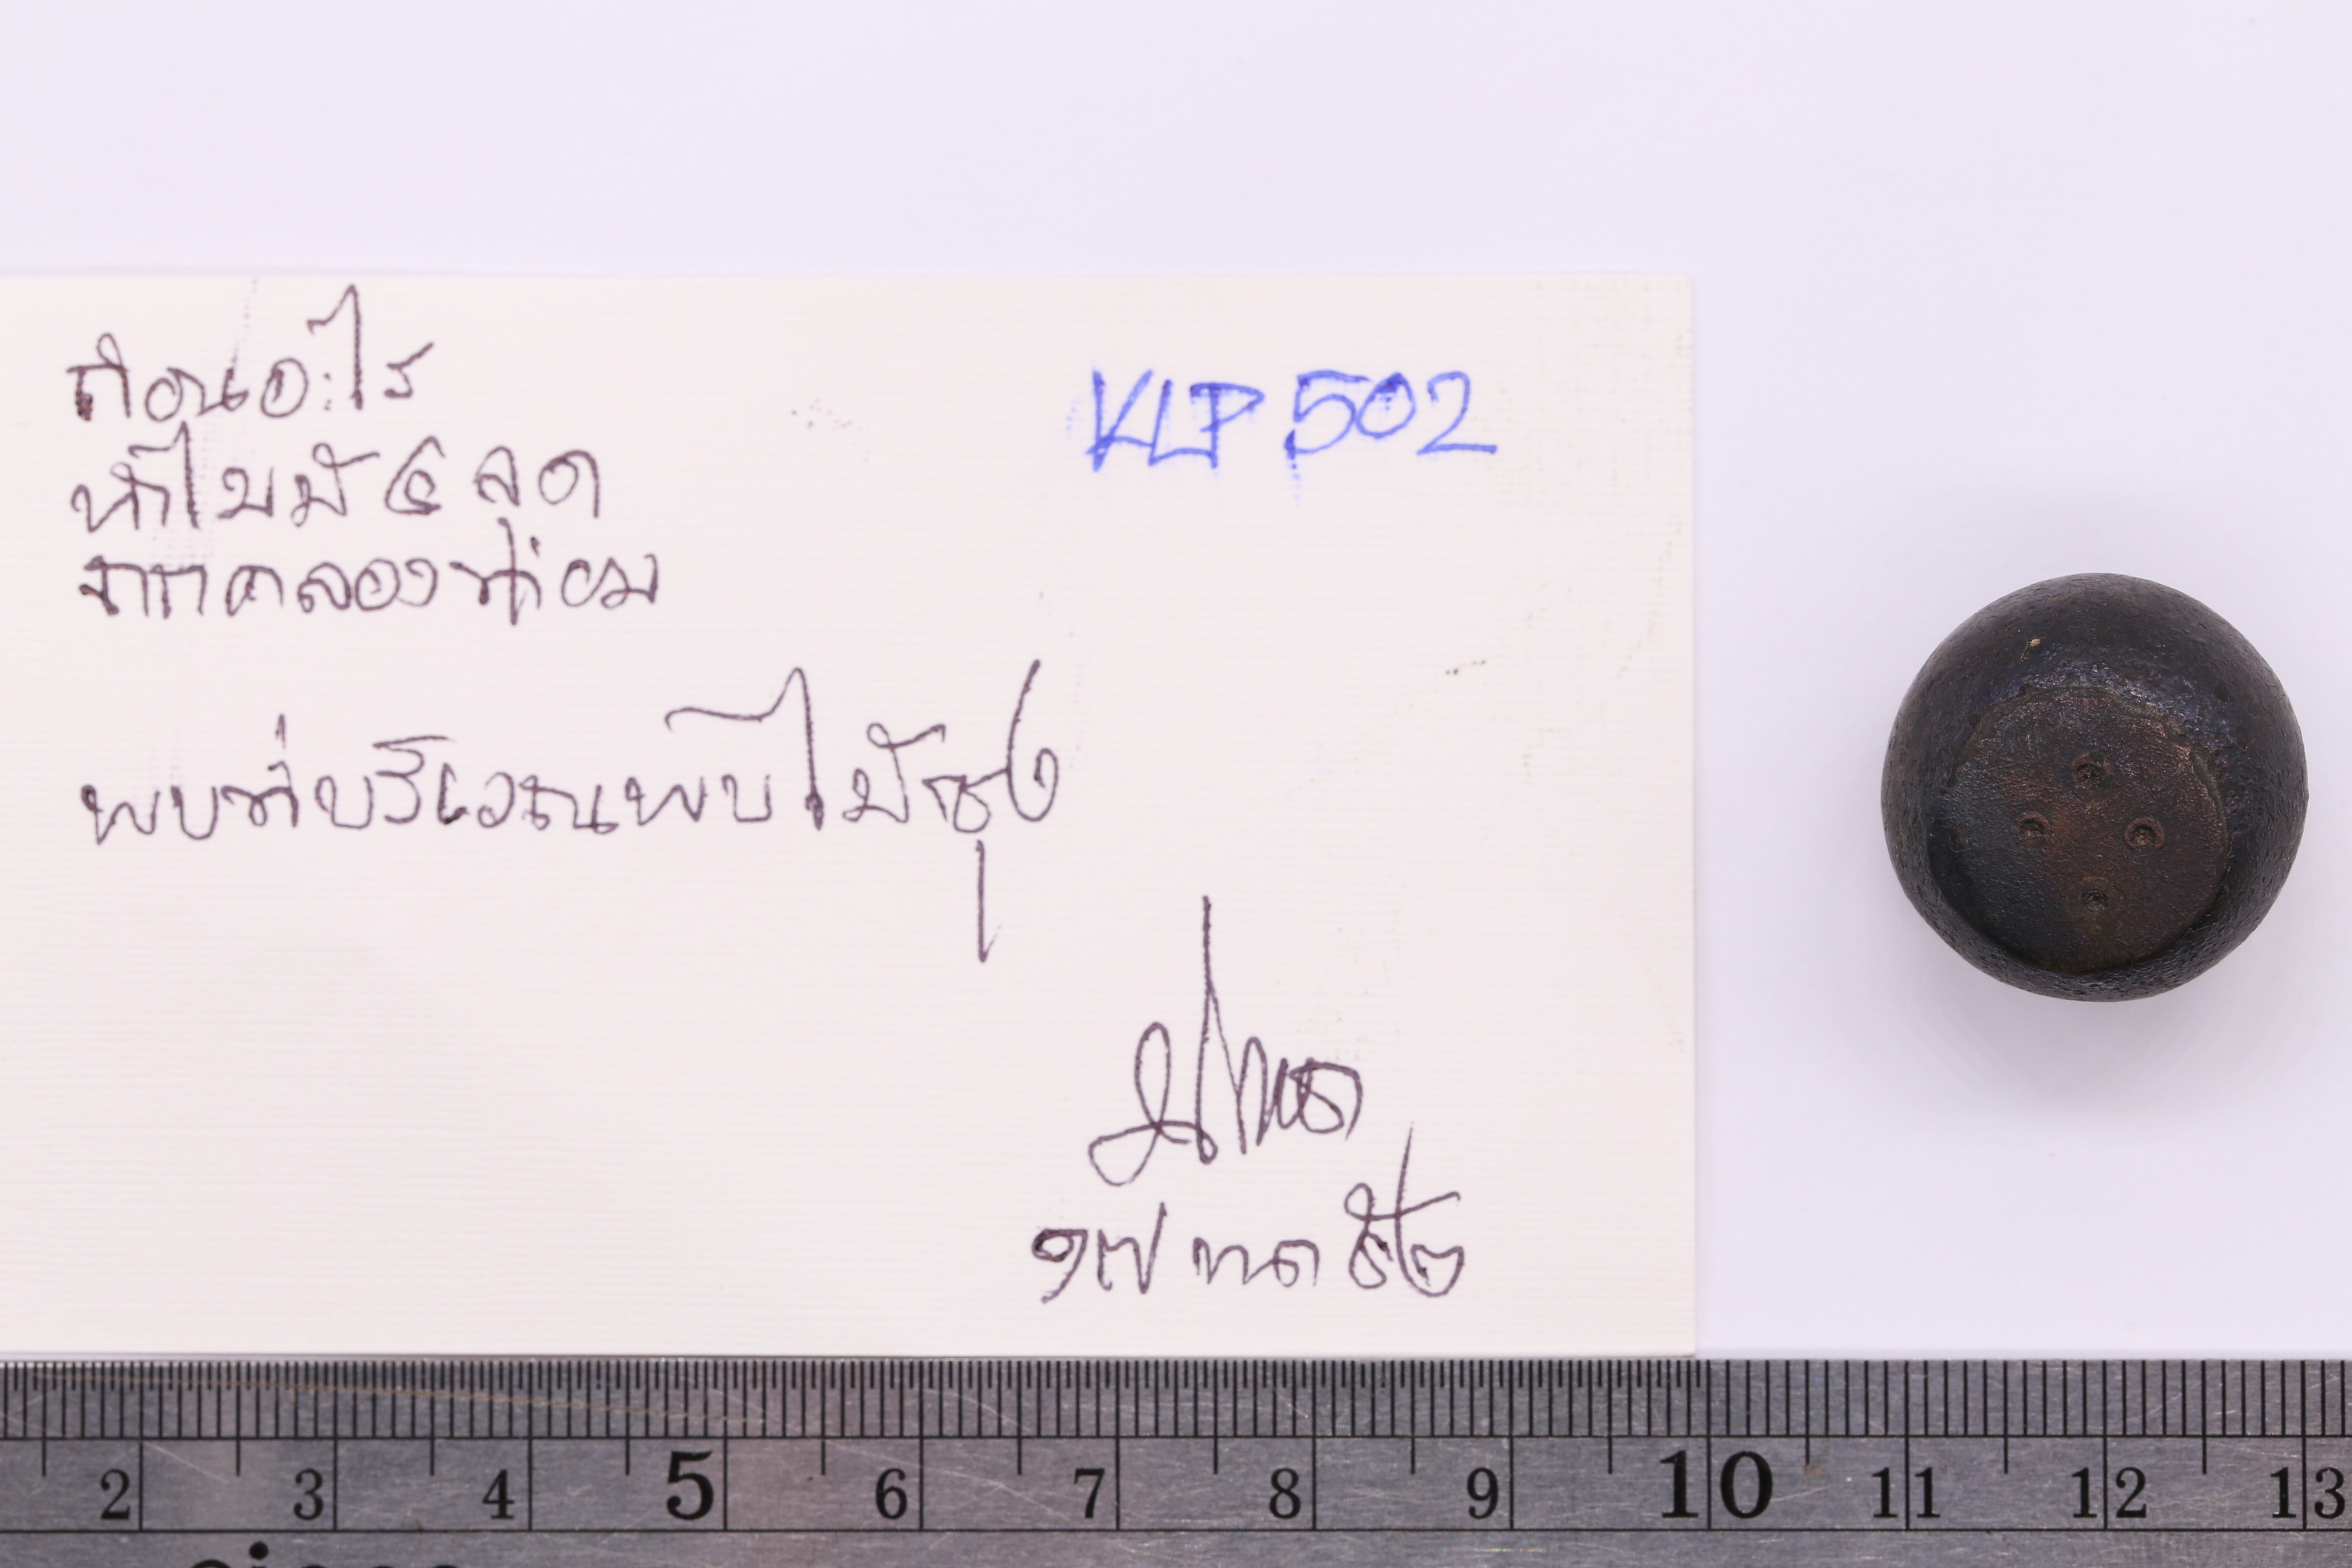 ก้อนอะไร
ทำไมมี ๔ จุด
จากคลองท่อม
KLP 502
พบที่บริเวณพบไม้ซุง
๑๗ กค ๕๒
2 3 4 5 6 7 8 9 10 11 12 13